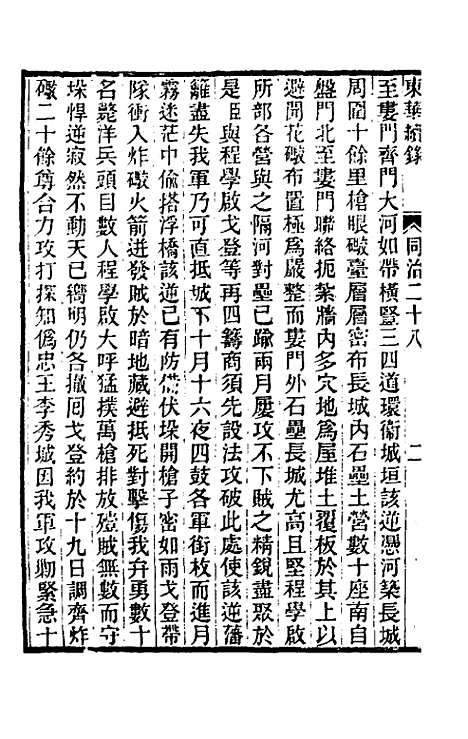 東華續錄 同治二十八 二
至婁門齊門大河如帶橫豎三四道環衞城垣該逆憑河築長城
周圍十餘里槍眼礮臺層層密布長城內石壘土營數十座南自
盤門北至婁門聯絡扼紮牆內多穴地爲屋堆土覆板於其上以
避開花礮布置極爲嚴整而婁門外石壘長城尤高且堅程學啟
所部各營與之隔河對壘已踰兩月屢攻不下賊之精銳盡聚於
是臣與程學啟戈登等再四籌商須先設法攻破此處使該逆藩
籬盡失我軍乃可直抵城下十月十六夜四鼓各軍銜枚而進月
霧迷茫中偸搭浮橋該逆已有防備伏垛開槍子密如雨戈登帶
隊衝入炸礮火箭迸發賊於暗地藏避抵死對擊傷我弁勇數十
名斃洋兵頭目數人程學啟大呼猛撲萬槍排放殪賊無數而守
垛悍逆寂然不動天已嚮明仍各撤囘戈登約於十九日調齊炸
礮二十餘尊合力攻打探知僞忠王李秀城因我軍攻勦緊急十